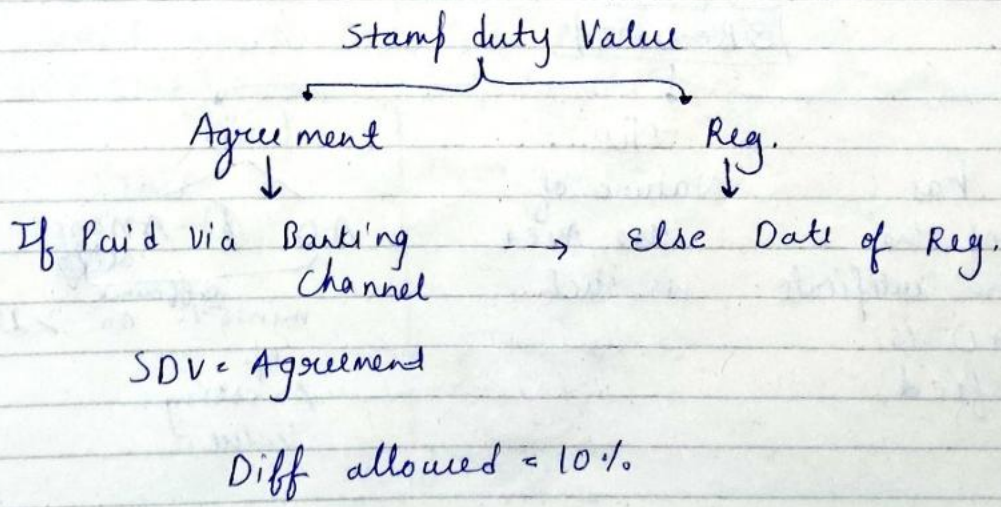 Stamp duty Value
Agreement Reg.
If Paid via Banking --→ Else Date of Reg.
Channel
SDV = Agreement
Diff allowed = 10%